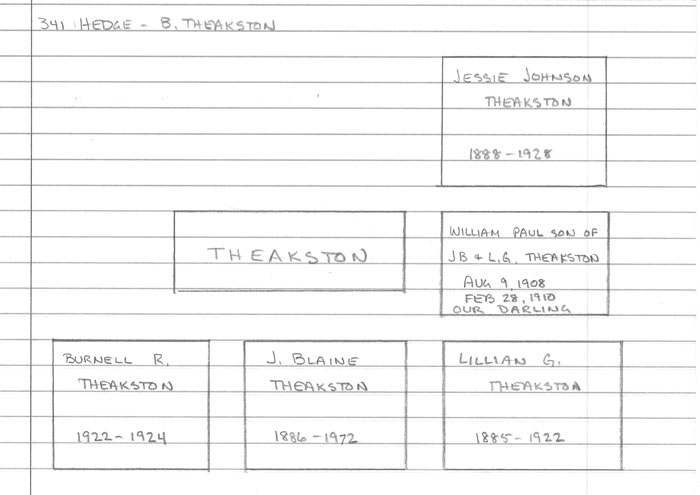 341 HEDGE - B. THEAKSTON
JESSIE JOHNSON
THEAKSTON
1888 - 1928
THEAKSTON
WILLIAM PAUL SON OF
JB & L.G. THEAKSTON
AUG 9, 1908
FEB 28, 1910
OUR DARLING
BURNELL R.
THEAKSTON
1922 - 1924
J. BLAINE
THEAKSTON
1886 - 1972
LILLIAN G.
THEAKSTON
1885 - 1922